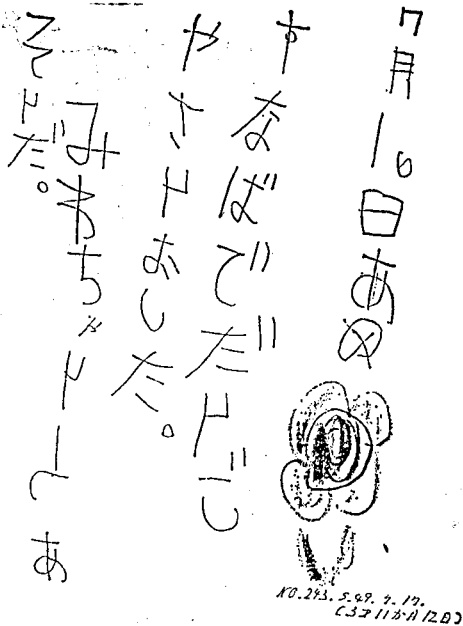 7月16日あめ
すなばでだんご
やさんおした。
みわちゃんとあ
そんだ。
NO.293. S.49. 7. 17.
(3才11か月12日)